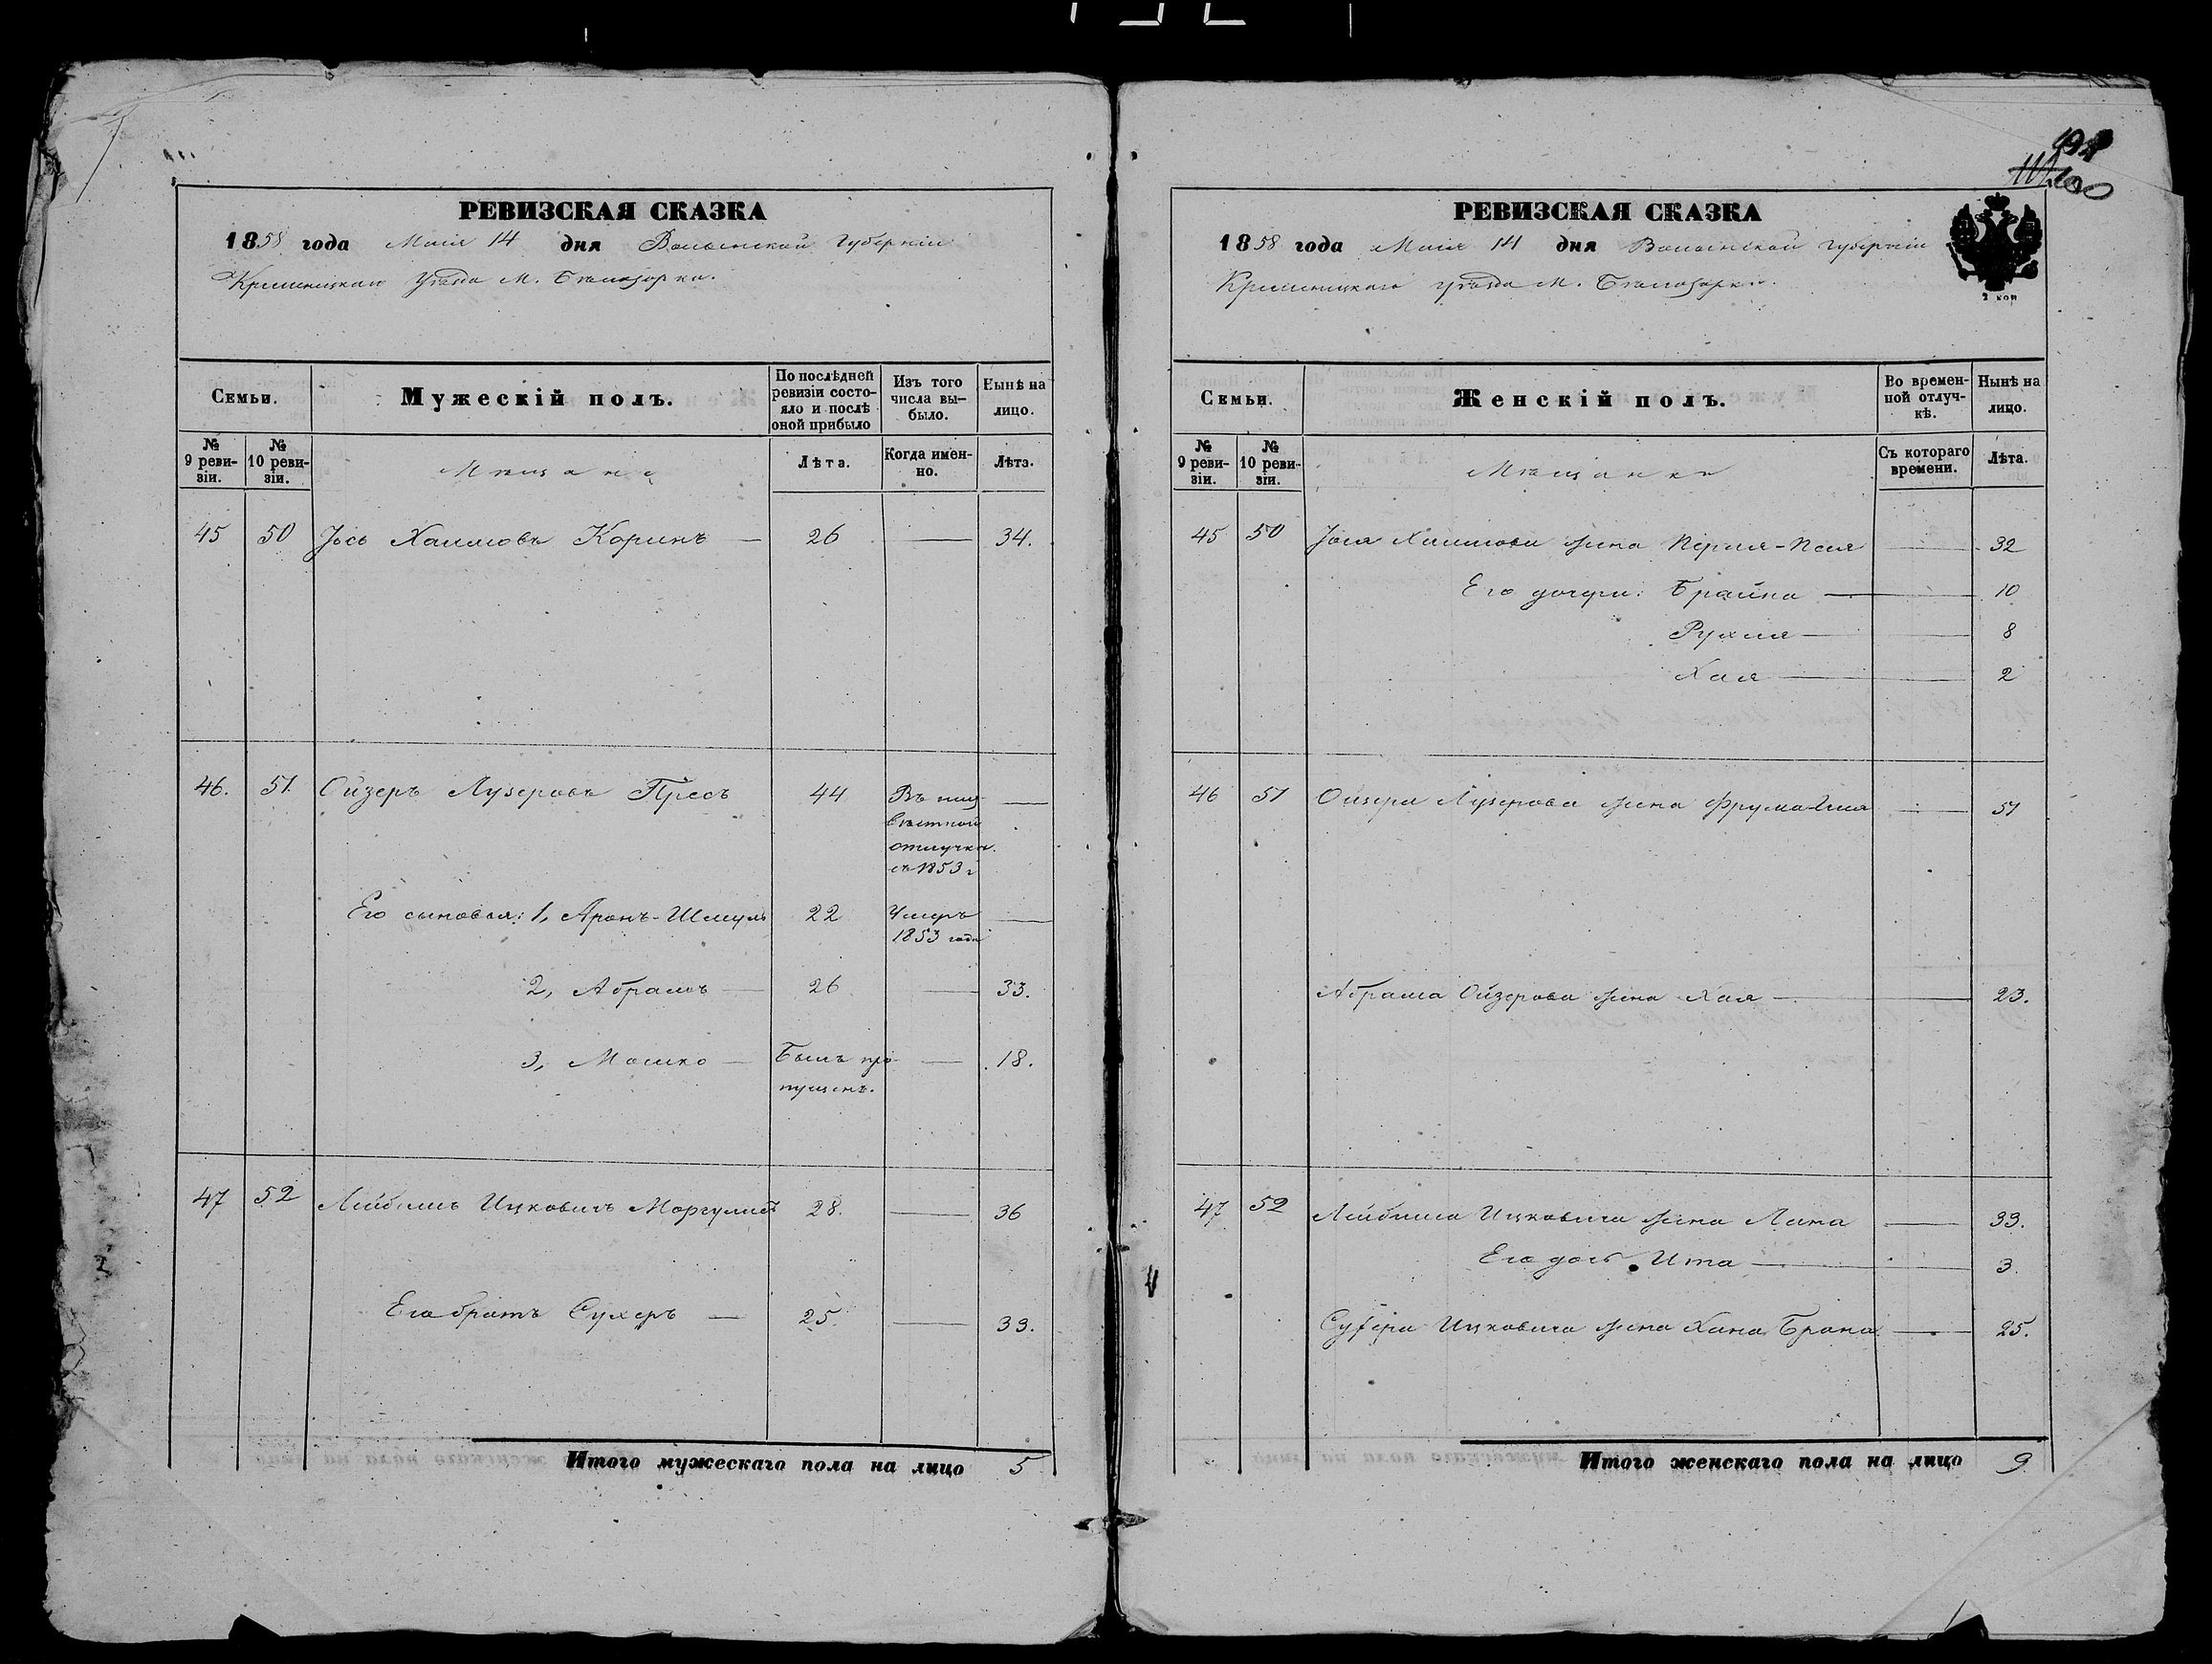 РЕВИЗСКАЯ СКАЗКА
1858 года Маія 14 дня Волынской Губерніи
Кременецкаго Уѣзда М. Бѣлозорки.
Семьи.
Мужескій полъ.
По послѣдней ревизіи состояло и послѣ оной прибыло
Изъ того числа выбыло.
Нынѣ на лицо.
№ 9 ревизіи.
№ 10 ревизіи.
Мѣщане
Лѣта.
Когда именно.
Лѣта.
45 50 Іось Хаимовъ Коринъ — 26 — 34.
46. 51. Ойзеръ Лузеровъ Пресъ 44 Въ неиз- —
вѣстной
отлучкѣ
съ 1853 г
Его сыновья: 1, Аронъ-Шмуль 22 Умеръ —
1853 года
2, Абрамъ — 26 — 33.
3, Мошко — Былъ про- — 18.
пущенъ.
47 52 Лейбишъ Ицковичъ Моргулисъ 28. — 36
Его братъ Сухеръ — 25. — 33.
Итого мужескаго пола на лицо 5
100
РЕВИЗСКАЯ СКАЗКА
1858 года Маія 14 дня Волынской Губерніи
Кременецкаго уѣзда М. Бѣлозорки.
2 коп
Семьи.
Женскій полъ.
Во временной отлучкѣ.
Нынѣ на лицо.
№ 9 ревизіи.
№ 10 ревизіи.
Мѣщанки
Съ котораго времени.
Лѣта.
45 50 Іося Хаимова жена Перля-Песя — 32
Его дочери: Брайна — 10
Рухля — 8
Хая — 2
46 51 Ойзера Лузерова жена Фрума — 51
Абрама Ойзерова жена Хая — 23.
47 52 Лейбиша Ицковича жена Лана — 33.
Его дочь Ита — 3
Сухера Ицковича жена Хана Брана — 25.
Итого женскаго пола на лицо 9